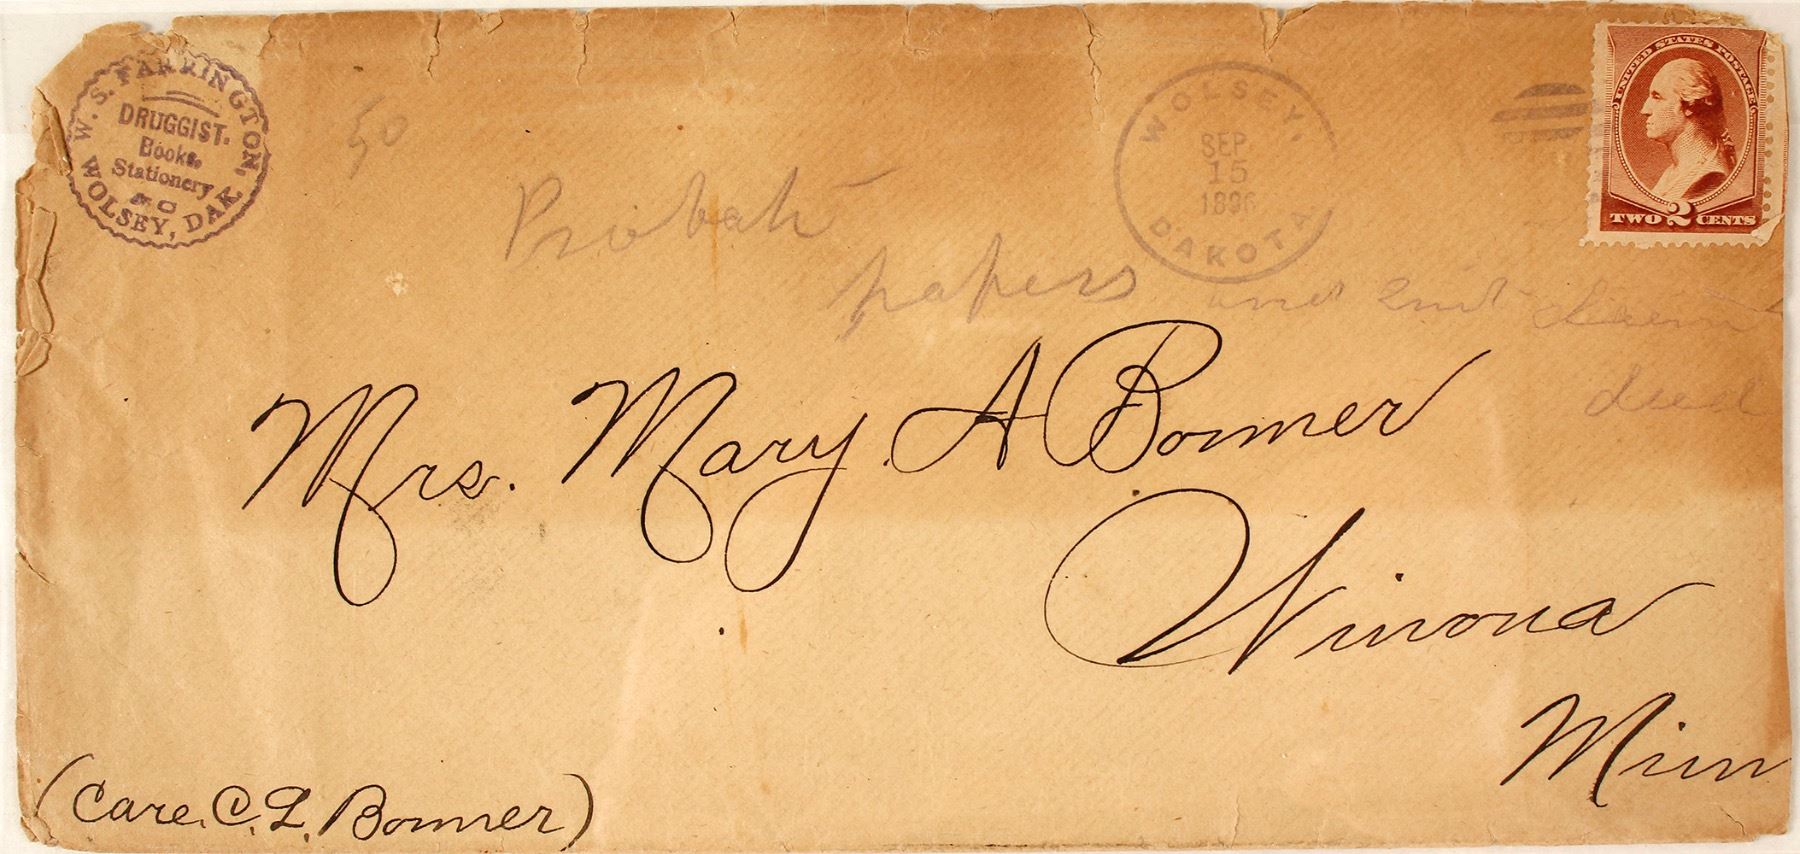 W. S. FARRINGTON,
DRUGGIST.
Books,
Stationery &
&C
WOLSEY, DAK.
50
WOLSEY,
SEP
15
DAKOTA
UNITED STATES POSTAGE
TWO 2 CENTS
Probate
papers and 2nd
deed
Mrs. Mary A Bonner
Winona
Minn
(Care. C. L. Bonner)